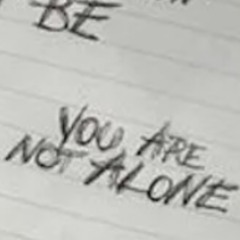 BE
YOU ARE
NOT ALONE